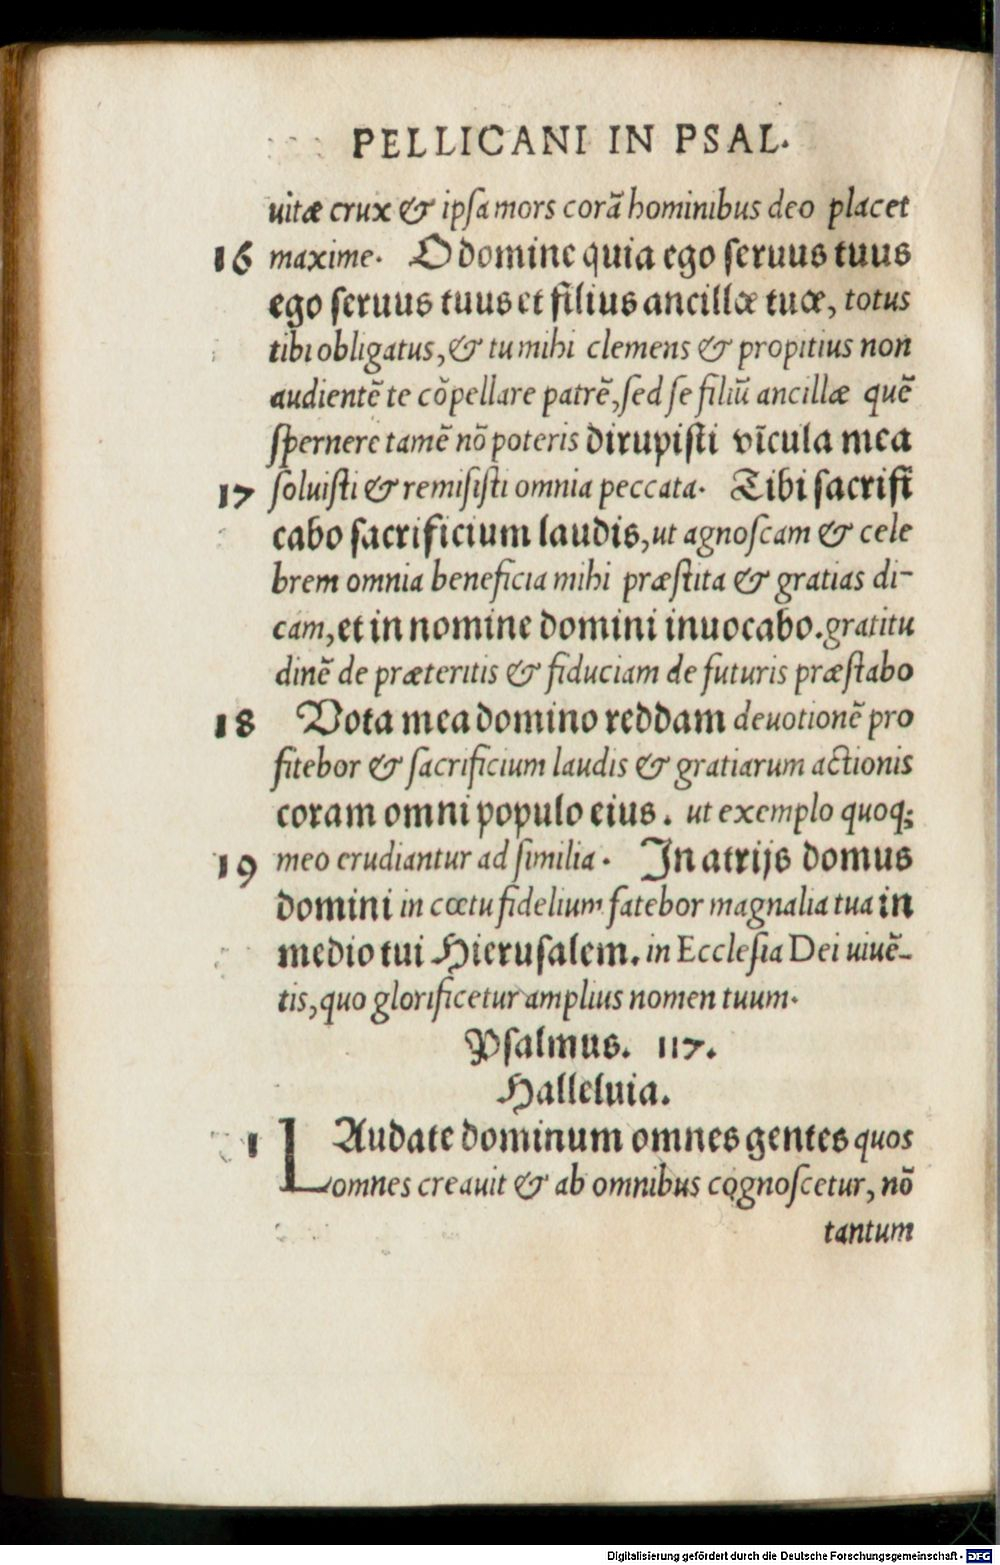 PELLICANI IN PSAL.
uitæ crux & ipsa mors corã hominibus deo placet
16 maxime. O domine quia ego seruus tuus
ego seruus tuus et filius ancillæ tuæ, totus
tibi obligatus, & tu mihi clemens & propitius non
audientẽ te cõpellare patrẽ, sed se filiũ ancillæ quẽ
spernere tamẽ nõ poteris dirupisti vĩcula mea
17 soluisti & remisisti omnia peccata. Tibi sacrifi
cabo sacrificium laudis, ut agnoscam & cele
brem omnia beneficia mihi præstita & gratias di-
cam, et in nomine domini inuocabo. gratitu
dinẽ de præteritis & fiduciam de futuris præstabo
18 Vota mea domino reddam deuotionẽ pro
fitebor & sacrificium laudis & gratiarum actionis
coram omni populo eius. ut exemplo quoq;
19 meo erudiantur ad similia. In atrijs domus
domini in cœtu fidelium fatebor magnalia tua in
medio tui Hierusalem. in Ecclesia Dei uiuẽ-
tis, quo glorificetur amplius nomen tuum.
Psalmus. 117.
Halleluia.
1 LAudate dominum omnes gentes quos
omnes creauit & ab omnibus cognoscetur, nõ
tantum
Digitalisierung gefördert durch die Deutsche Forschungsgemeinschaft - DFG